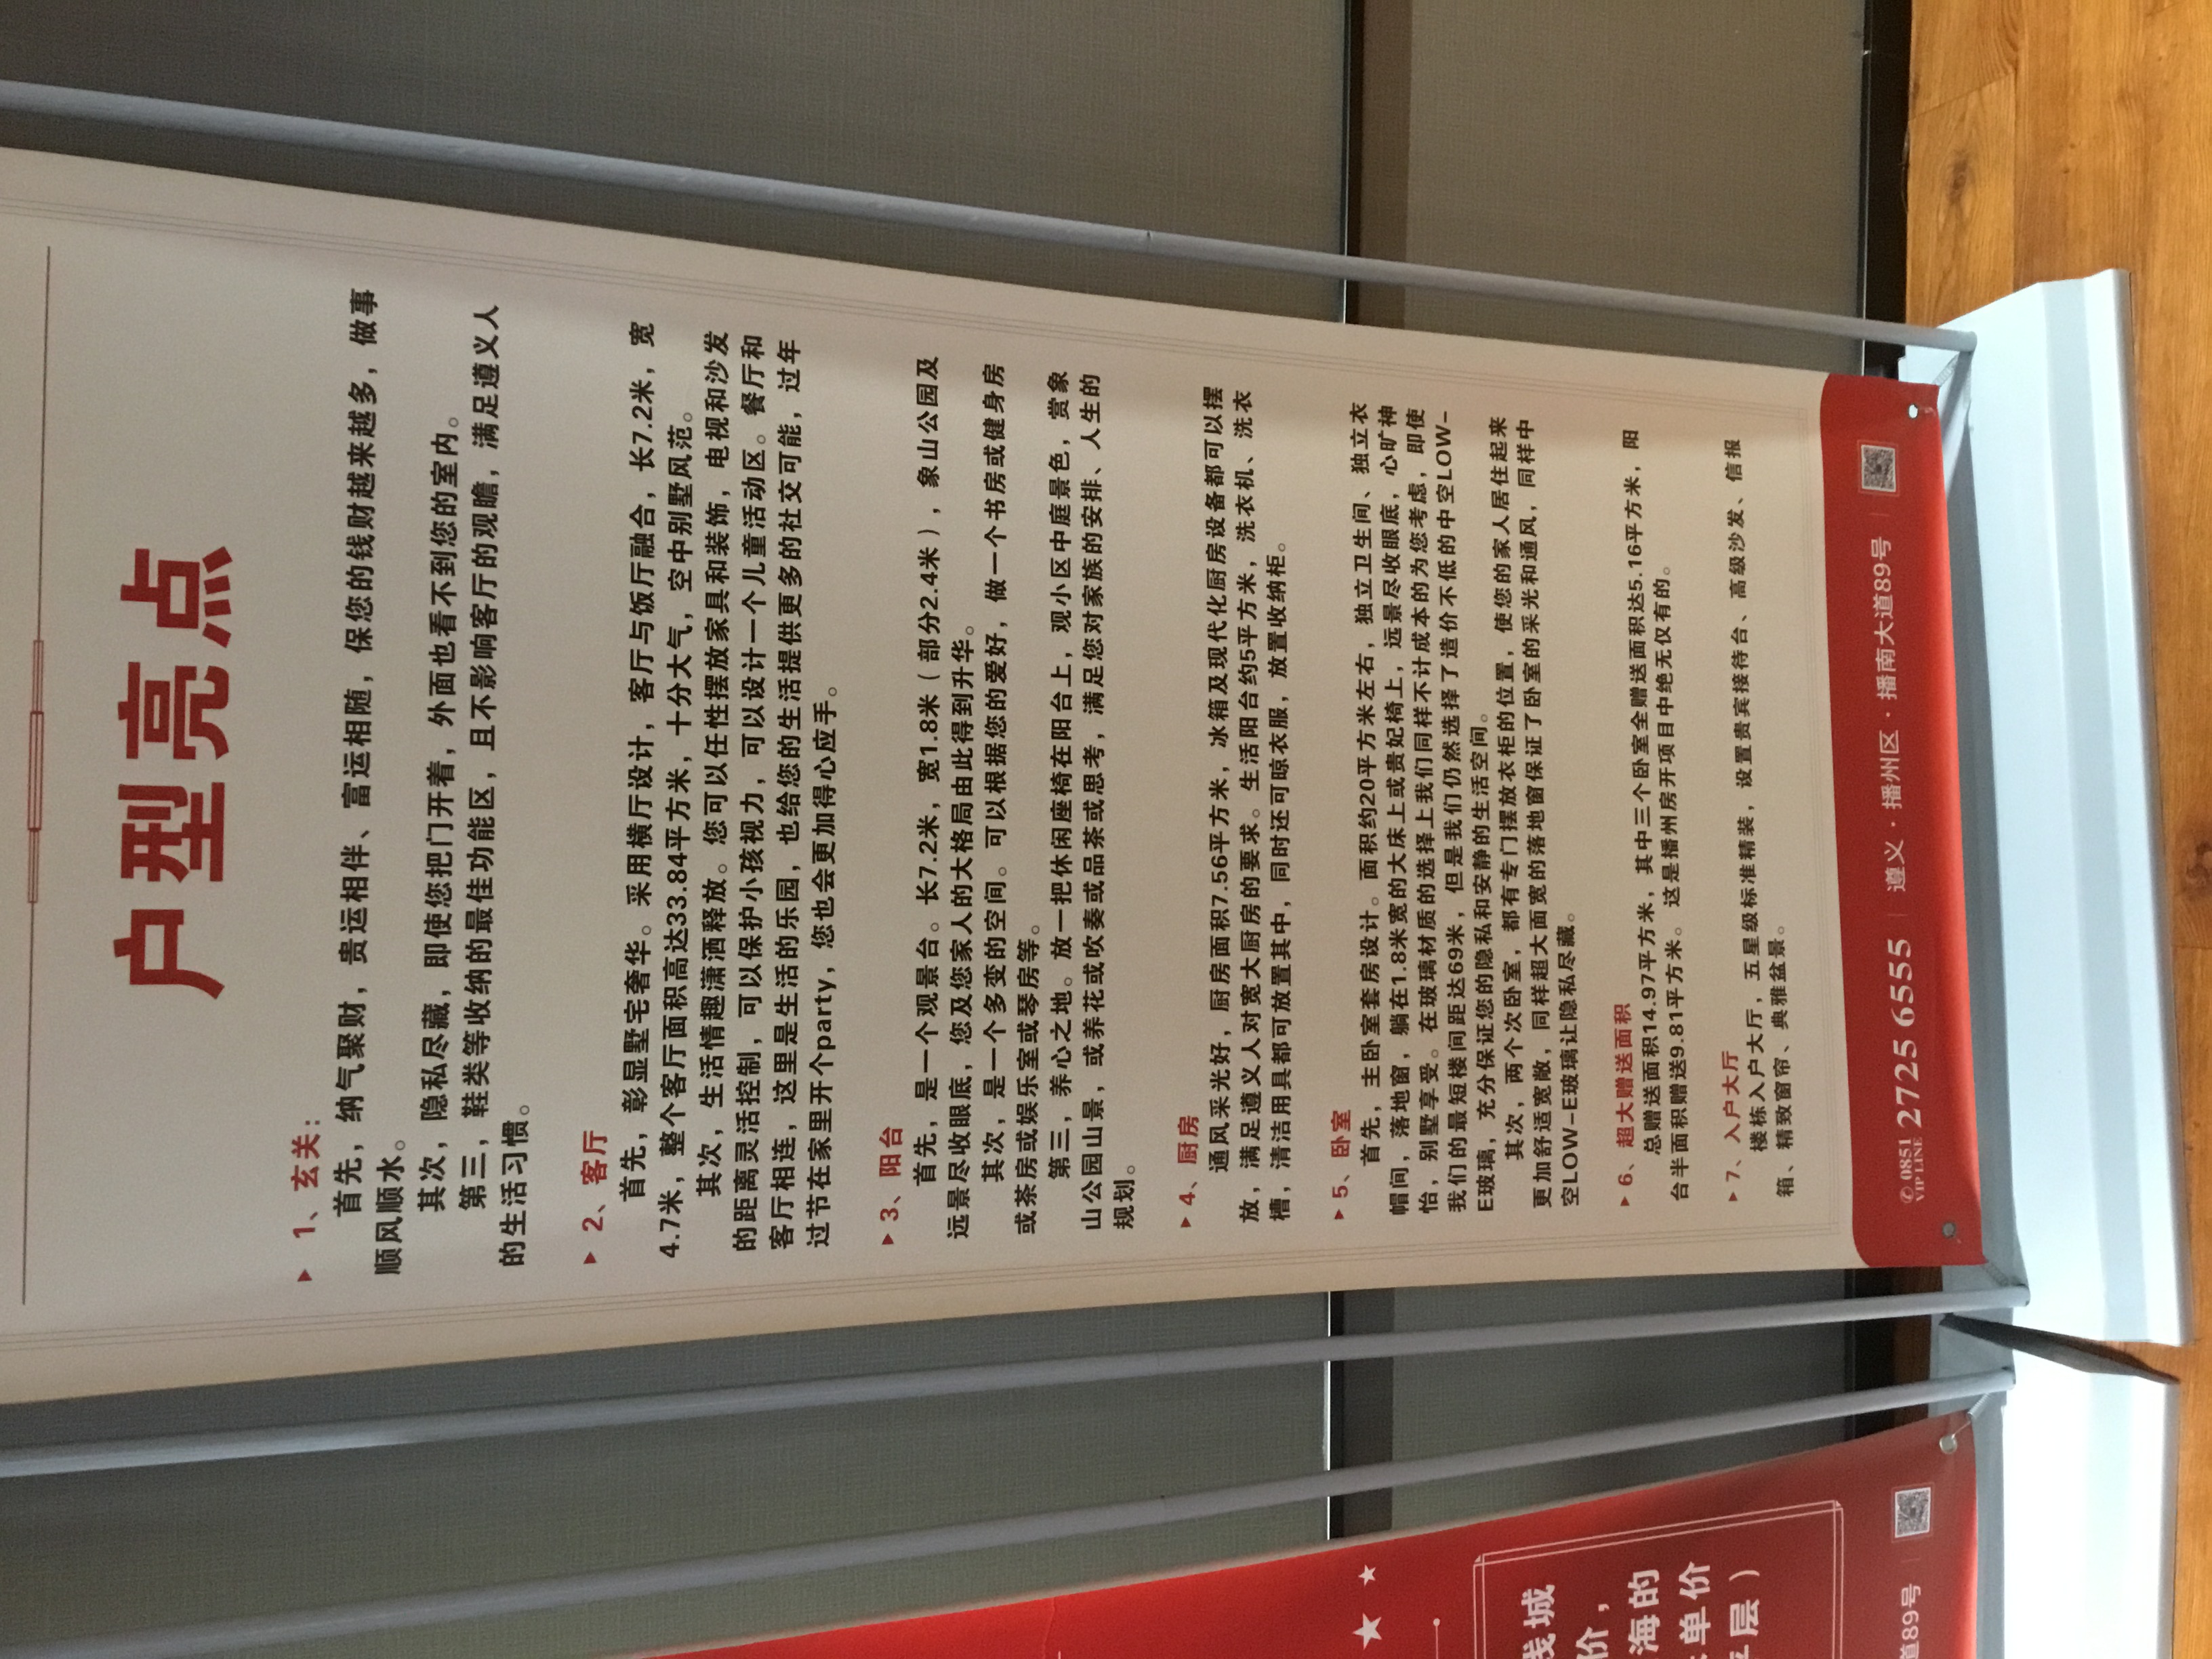 户型亮点
▶ 1、玄关：
首先，纳气聚财，贵运相伴、富运相随，保您的钱财越来越多，做事
顺风顺水。
其次，隐私尽藏，即使您把门开着，外面也看不到您的室内。
第三，鞋类等收纳的最佳功能区，且不影响客厅的观瞻，满足遵义人
的生活习惯。
▶ 2、客厅
首先，彰显墅宅奢华。采用横厅设计，客厅与饭厅融合，长7.2米，宽
4.7米，整个客厅面积高达33.84平方米，十分大气，空中别墅风范。
其次，生活情趣潇洒释放。您可以任性摆放家具和装饰，电视和沙发
的距离灵活控制，可以保护小孩视力，可以设计一个儿童活动区。餐厅和
客厅相连，这里是生活的乐园，也给您的生活提供更多的社交可能，过年
过节在家里开个party，您也会更加得心应手。
▶ 3、阳台
首先，是一个观景台。长7.2米，宽1.8米（部分2.4米），象山公园及
远景尽收眼底，您及您家人的大格局由此得到升华。
其次，是一个多变的空间。可以根据您的爱好，做一个书房或健身房
或茶房或娱乐室或琴房等。
第三，养心之地。放一把休闲座椅在阳台上，观小区中庭景色，赏象
山公园山景，或养花或吹奏或品茶或思考，满足您对家族的安排、人生的
规划。
▶ 4、厨房
通风采光好，厨房面积7.56平方米，冰箱及现代化厨房设备都可以摆
放，满足遵义人对宽大厨房的要求。生活阳台约5平方米，洗衣机、洗衣
槽，清洁用具都可放置其中，同时还可晾衣服，放置收纳柜。
▶ 5、卧室
首先，主卧室套房设计。面积约20平方米左右，独立卫生间、独立衣
帽间，落地窗，躺在1.8米宽的大床上或贵妃椅上，远景尽收眼底，心旷神
怡，别墅享受。在玻璃材质的选择上我们同样不计成本的为您考虑，即使
我们的最短楼间距达69米，但是我们仍然选择了造价不低的中空LOW-
E玻璃，充分保证您的隐私和安静的生活空间。
其次，两个次卧室，都有专门摆放衣柜的位置，使您的家人居住起来
更加舒适宽敞，同样超大面宽的落地窗保证了卧室的采光和通风，同样中
空LOW-E玻璃让隐私尽藏。
▶ 6、超大赠送面积
总赠送面积14.97平方米，其中三个卧室全赠送面积达5.16平方米，阳
台半面积赠送9.81平方米。这是播州房开项目中绝无仅有的。
▶ 7、入户大厅
楼栋入户大厅，五星级标准精装，设置贵宾接待台、高级沙发、信报
箱、精致窗帘、典雅盆景。
✆ 0851
VIP LINE 2725 6555 | 遵义 · 播州区 · 播南大道89号 |
浅城
价，
海的
单价
层）
道89号